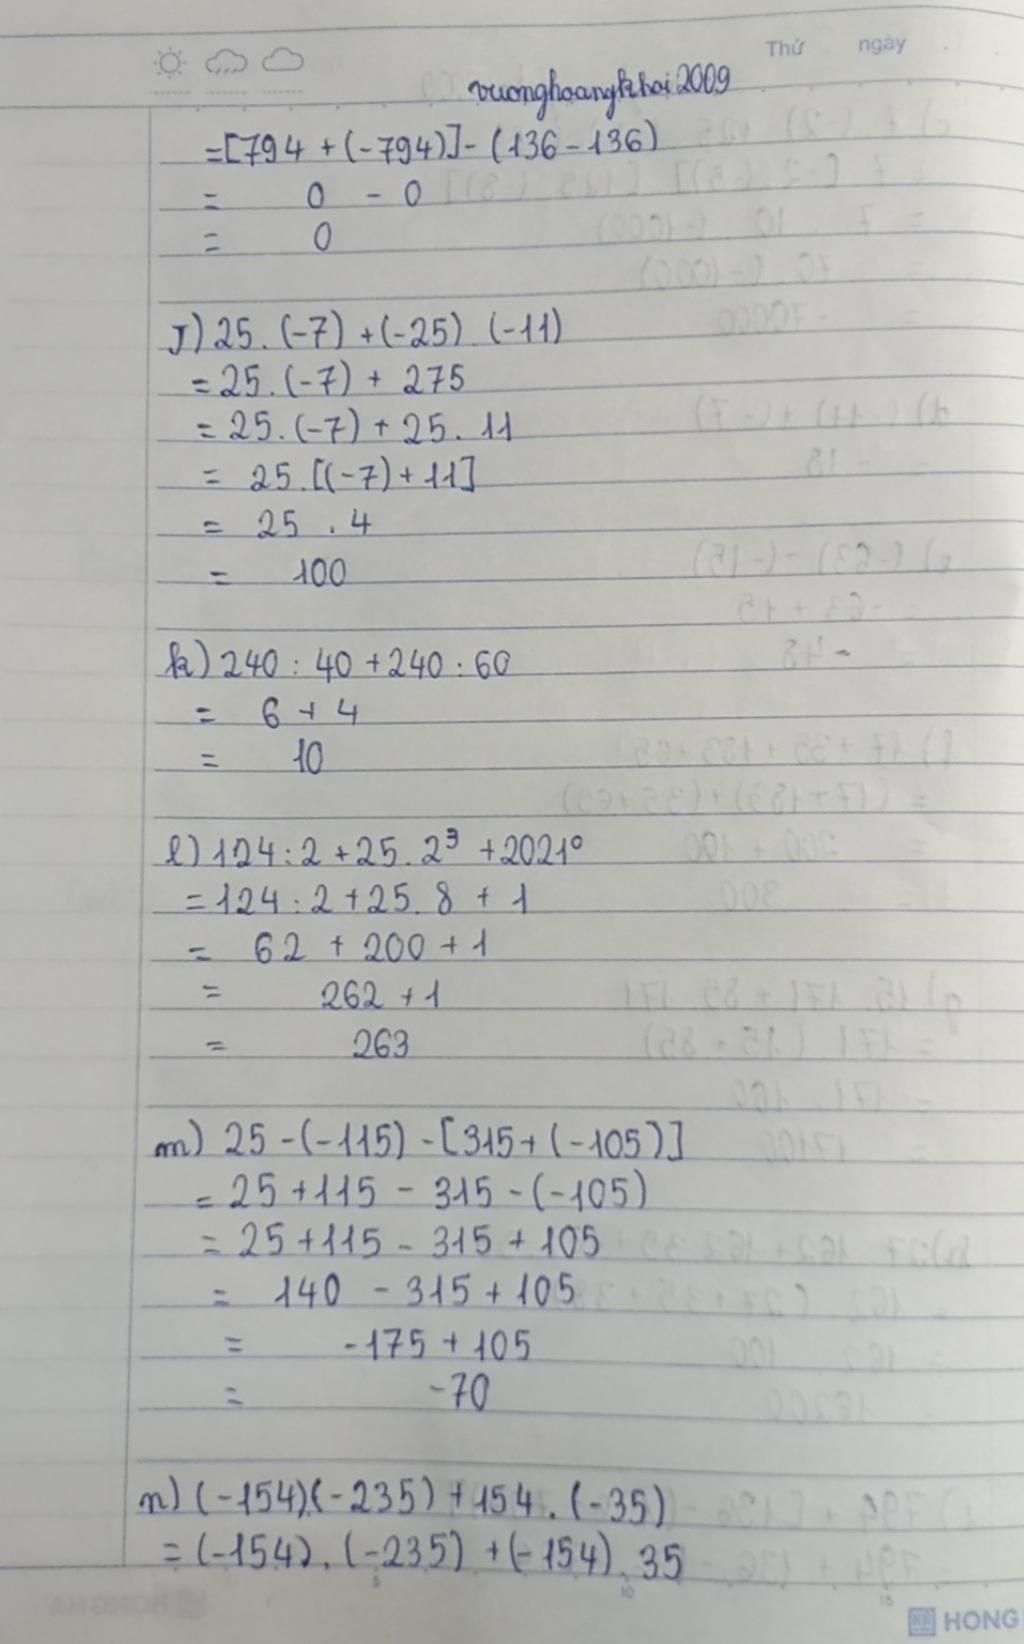 Thứ ngày
vuonghoangkhai2009
=[794 + (-794)] - (136 - 136)
= 0 - 0
= 0
J) 25. (-7) + (-25). (-11)
= 25. (-7) + 275
= 25. (-7) + 25. 11
= 25. [(-7) + 11]
= 25 . 4
= 100
k) 240 : 40 + 240 : 60
= 6 + 4
= 10
l) 124 : 2 + 25. 2³ + 2021⁰
= 124 : 2 + 25. 8 + 1
= 62 + 200 + 1
= 262 + 1
= 263
m) 25 - (-115) - [315 + (-105)]
= 25 + 115 - 315 - (-105)
= 25 + 115 - 315 + 105
= 140 - 315 + 105
= -175 + 105
= -70
n) (-154).(-235) + 154. (-35)
= (-154). (-235) + (-154). 35
HONG